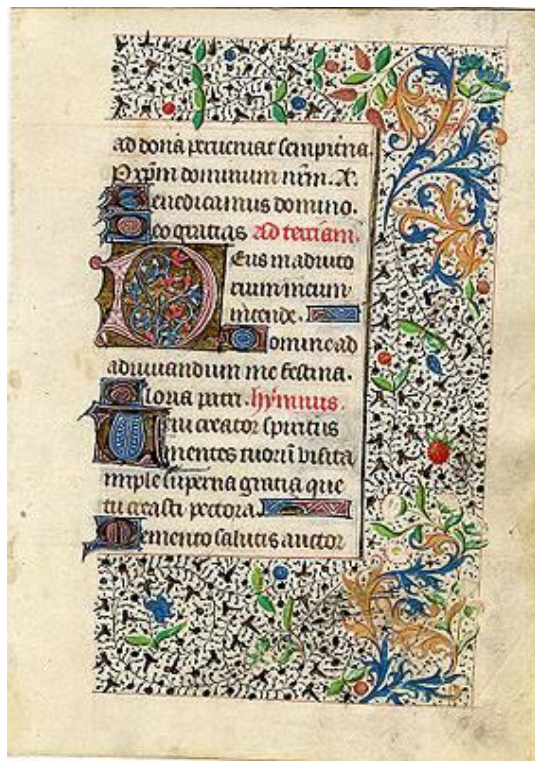 ad dona perveniat sempiterna.
P xpm dominum nrm. R.
Benedicamus domino.
Deo gratias Ad terciam.
Deus in adiuto
rium meum
intende.
Domine ad
adiuvandum me festina.
Gloria patri. hymnus.
Veni creator spiritus
mentes tuorum visita
imple superna gratia que
tu creasti pectora.
Memento salutis auctor